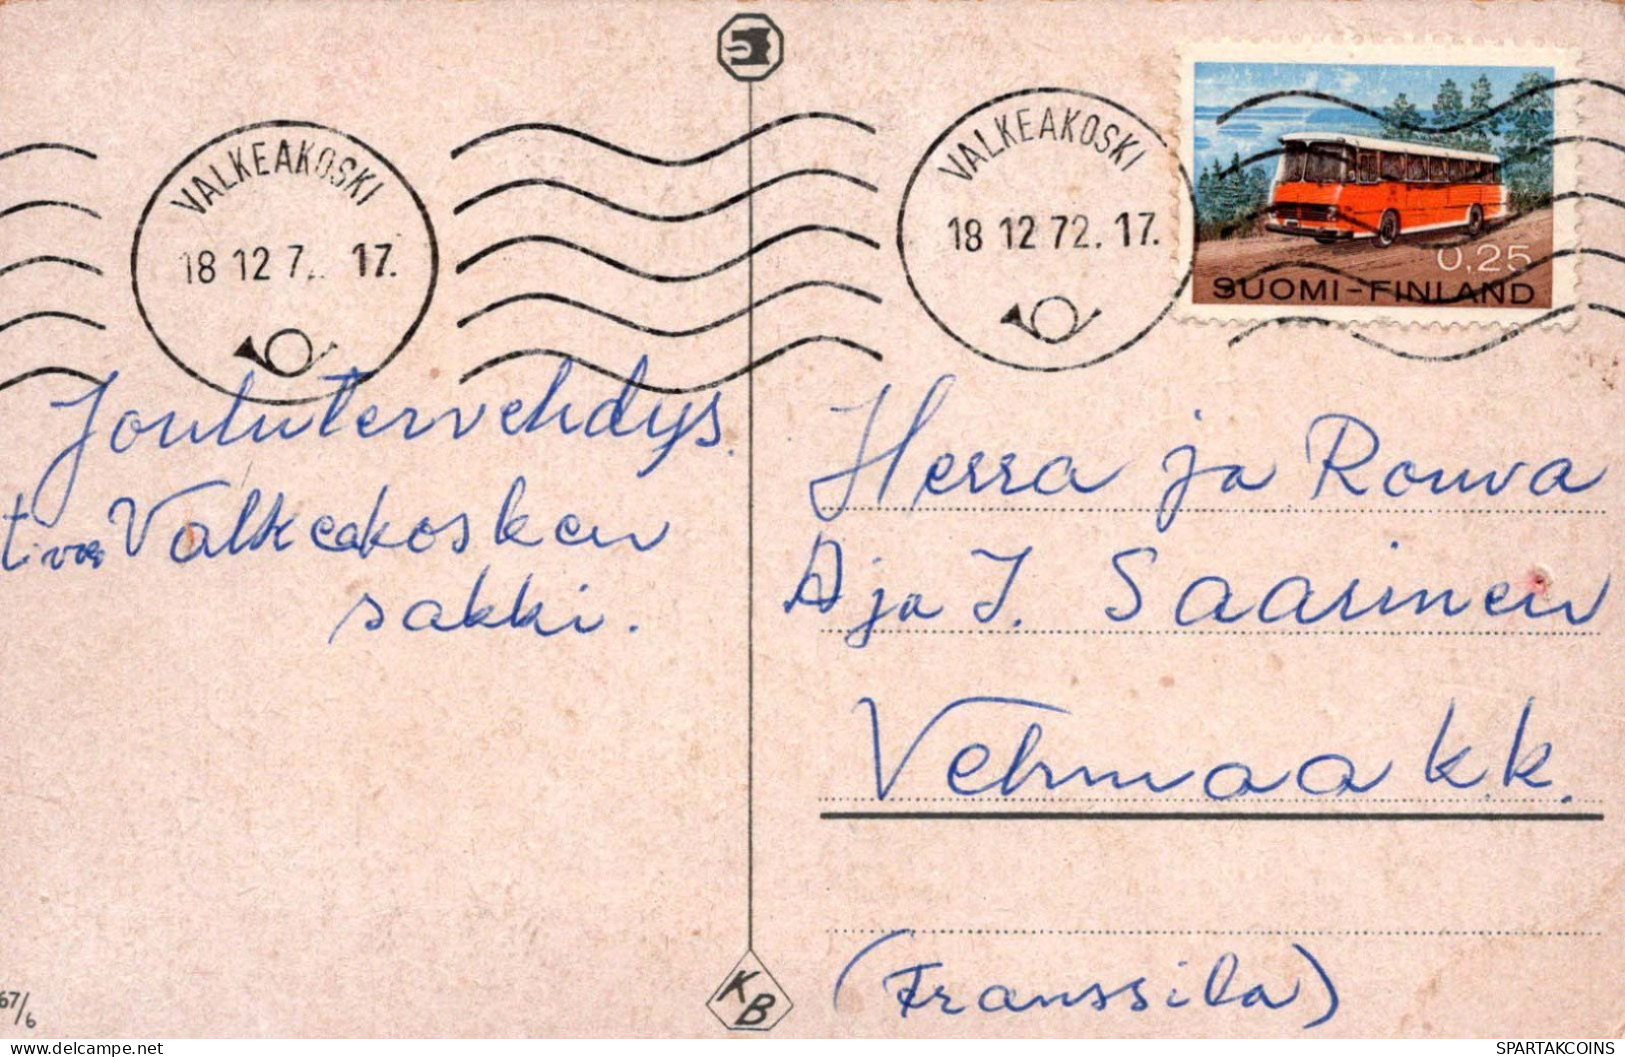 VALKEAKOSKI
18 12 7 . 17.
VALKEAKOSKI
18 12 72. 17.
0,25
SUOMI-FINLAND
Joulutervehdys.
Valkeakosken
sakki.
Herra ja Rouva
A ja I. Saarinen
Vehmaa k.k.
(Franssila)
67/6
KB
delcampe.net
SPARTAKCOINS